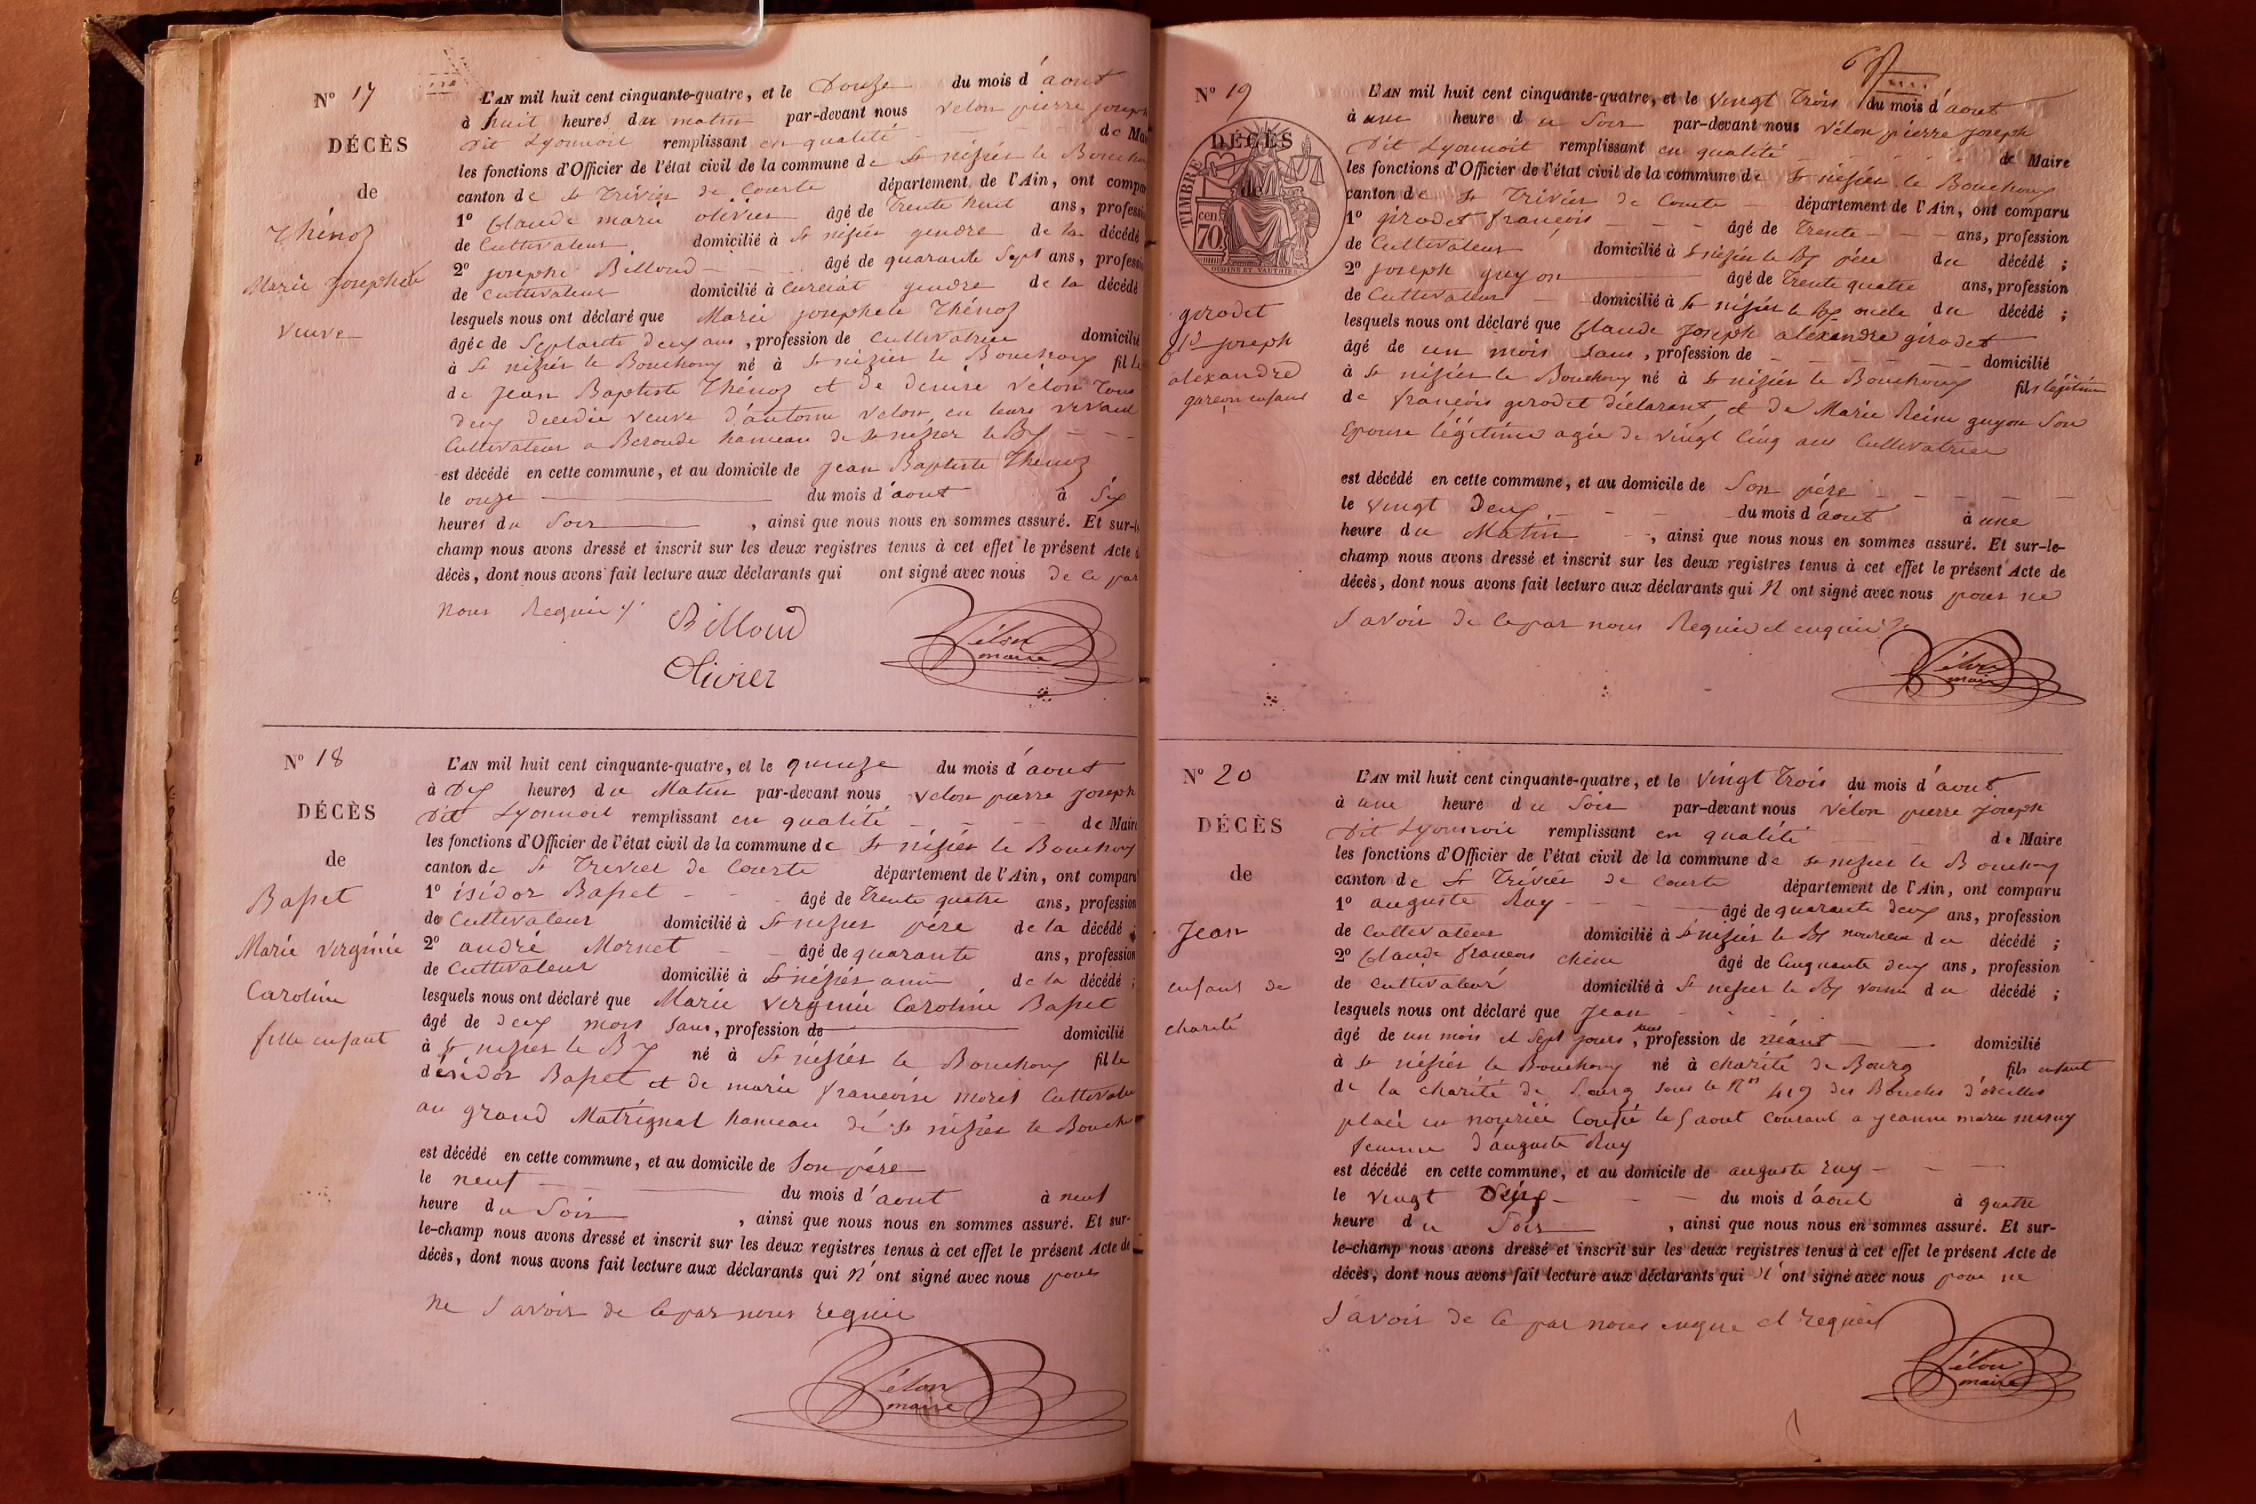 Nº 17
DÉCÈS
de
Thénoz
Marie Josephete
veuve
L'AN mil huit cent cinquante-quatre, et le Douze du mois d'aout
à huit heures du matin par-devant nous Vélon pierre joseph
Dit Lyonnoit remplissant en qualité de Mai
les fonctions d'Officier de l'état civil de la commune de St nisier le Bouch
canton de St Trivier de Courte département de l'Ain, ont compa
1º Claude marie olivier âgé de Trente huit ans, profess
de Cultivateur domicilié à St nisier gendre de la décédé
2º josephe Billoud âgé de quarante Sept ans, profess
de Cultivateur domicilié à Curciat gendre de la décédé
lesquels nous ont déclaré que Marie josephete Thénoz
âgée de Septante deux ans, profession de Cultivatrice domicilié
à St nisier le Bouchoux né à St nizier le Bouchoux fille
de Jean Baptiste Thénoz et de Denise Vélon Tous
deux décédés veuve d'antoine Velon, en leurs vivant
Cultivateur a Beroude hameau de St nisier le Bx
est décédé en cette commune, et au domicile de Jean Baptiste Thenoz
le onze du mois d'aout à Six
heures du Soir, ainsi que nous nous en sommes assuré. Et sur-le
champ nous avons dressé et inscrit sur les deux registres tenus à cet effet le présent Acte d
décès, dont nous avons fait lecture aux déclarants qui ont signé avec nous de ce par
nous Requis
Billoud
Olivier
Vélon
maire
Nº 18
DÉCÈS
de
Basset
Marie Verginie
Caroline
fille enfant
L'AN mil huit cent cinquante-quatre, et le quinze du mois d'aout
à Dix heures du Matin par-devant nous Velon pierre joseph
Dit Lyonnoit remplissant en qualité de Maire
les fonctions d'Officier de l'état civil de la commune de St nisier le Bouchoux
canton de St Trivier de Courte département de l'Ain, ont comparu
1º isidor Basset âgé de Trente quatre ans, profession
de Cultivateur domicilié à St nisier père de la décédé
2º andré Mornet âgé de quarante ans, profession
de Cultivateur domicilié à St nisier ami de la décédé ;
lesquels nous ont déclaré que Marie Verginie Caroline Basset
âgé de deux mois sans, profession de domicilié
à St nizier le Bx né à St nisier le Bouchoux fille
d'isidor Basset et de marie francoise moret Cultivate
au grand Matrignat hameau de St nisier le Bouch
est décédé en cette commune, et au domicile de Son père
le neuf du mois d'aout à neuf
heure du Soir, ainsi que nous nous en sommes assuré. Et sur-
le-champ nous avons dressé et inscrit sur les deux registres tenus à cet effet le présent Acte de
décès, dont nous avons fait lecture aux déclarants qui N'ont signé avec nous pour
ne Savoir de ce par nous requis
Vélon
maire
Nº 19
DÉCÈS
de
TIMBRE
70 cen.
OUDINE ET VAUTHIER
girodet
Cl joseph
alexandre
garçon enfant
L'AN mil huit cent cinquante-quatre, et le Vingt Trois du mois d'aout
à une heure du Soir par-devant nous Vélon pierre joseph
Dit Lyonnoit remplissant en qualité de Maire
les fonctions d'Officier de l'état civil de la commune de St nisier le Bouchoux
canton de St Trivier de Courte département de l'Ain, ont comparu
1º girodet françois âgé de Trente ans, profession
de Cultivateur domicilié à St nisier le Bx père du décédé ;
2º Joseph guyon âgé de Trente quatre ans, profession
de Cultivateur domicilié à St nisier le Bx oncle du décédé ;
lesquels nous ont déclaré que Claude Joseph alexandre girodet
âgé de un mois sans, profession de domicilié
à St nisier le Bouchoux né à St nisier le Bouchoux fils légitime
de françois girodet déclarant, et de Marie Reine guyon Son
Epouse légitime agée de Vingt Cinq ans Cultivatrice
est décédé en cette commune, et au domicile de Son père
le Vingt Deux du mois d'aout à une
heure du Matin, ainsi que nous nous en sommes assuré. Et sur-le-
champ nous avons dressé et inscrit sur les deux registres tenus à cet effet le présent Acte de
décès, dont nous avons fait lecture aux déclarants qui N ont signé avec nous pour ne
Savoir de ce par nous Requis et enquis
Vélon
maire
Nº 20
DÉCÈS
de
Jean
enfant de
charité
L'AN mil huit cent cinquante-quatre, et le Vingt Trois du mois d'aout
à une heure du Soir par-devant nous Vélon pierre joseph
Dit Lyonnoit remplissant en qualité de Maire
les fonctions d'Officier de l'état civil de la commune de St nisier le Bouchoux
canton de St Trivier de Courte département de l'Ain, ont comparu
1º auguste Ray âgé de quarante deux ans, profession
de Cultivateur domicilié à St nisier le Bx du décédé ;
2º Claude françois chêne âgé de Cinquante deux ans, profession
de cultivateur domicilié à St nisier le Bx voisin du décédé ;
lesquels nous ont déclaré que Jean
âgé de un mois et Sept jours, sans profession de néant domicilié
à St nisier le Bouchoux né à charité de Bourg fils enfant
de la charité de Bourg sous le Nº 419 des Boucles d'oreilles
placé en le 5 aout Courant a jeanne marie
femme d'auguste Ray
est décédé en cette commune, et au domicile de auguste ray
le Vingt du mois d'aout à quatre
heure du Soir, ainsi que nous nous en sommes assuré. Et sur-
le-champ nous avons dressé et inscrit sur les deux registres tenus à cet effet le présent Acte de
décès, dont nous avons fait lecture aux déclarants qui N'ont signé avec nous pour ne
Savoir de ce par nous enquis et requis
Vélon
maire